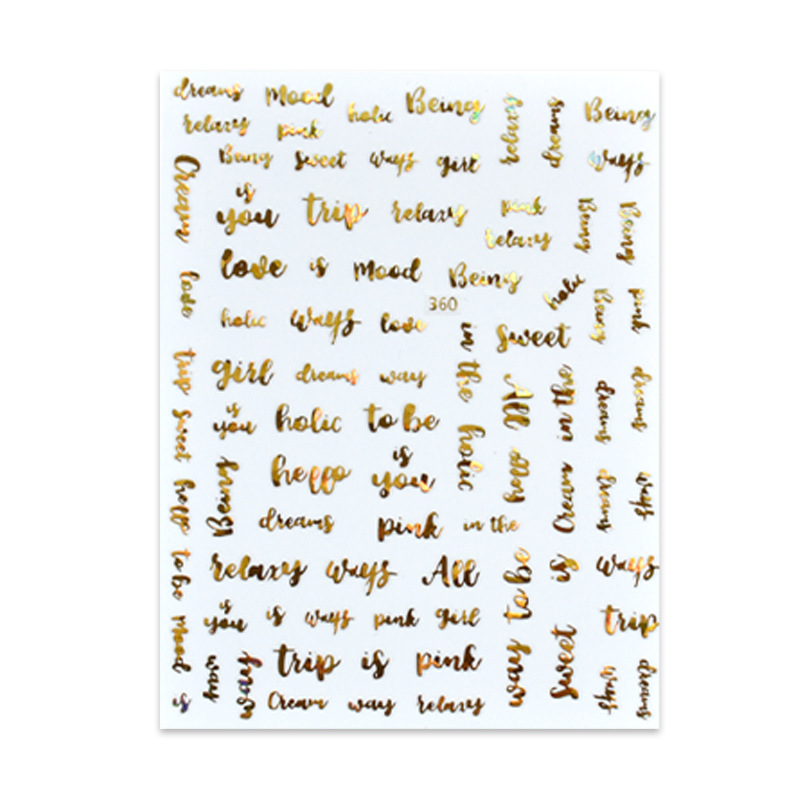 dreams Mood holic Being relaxy dreams Being
relaxy pink
Being Sweet ways girl ways
Cream is
you trip relaxy pink Being Being
relaxy
love love is Mood Being holic
360
holic ways love in the Sweet Being pink
trip girl dreams way All in the dreams dreams
Sweet is
you holic to be holic hello
hello Being hello is
you Cream dreams ways
dreams pink in the
to be relaxy ways All way to be is ways
Mood is
you is ways pink girl Sweet trip
way way trip is pink ways dreams
is Cream way relaxy